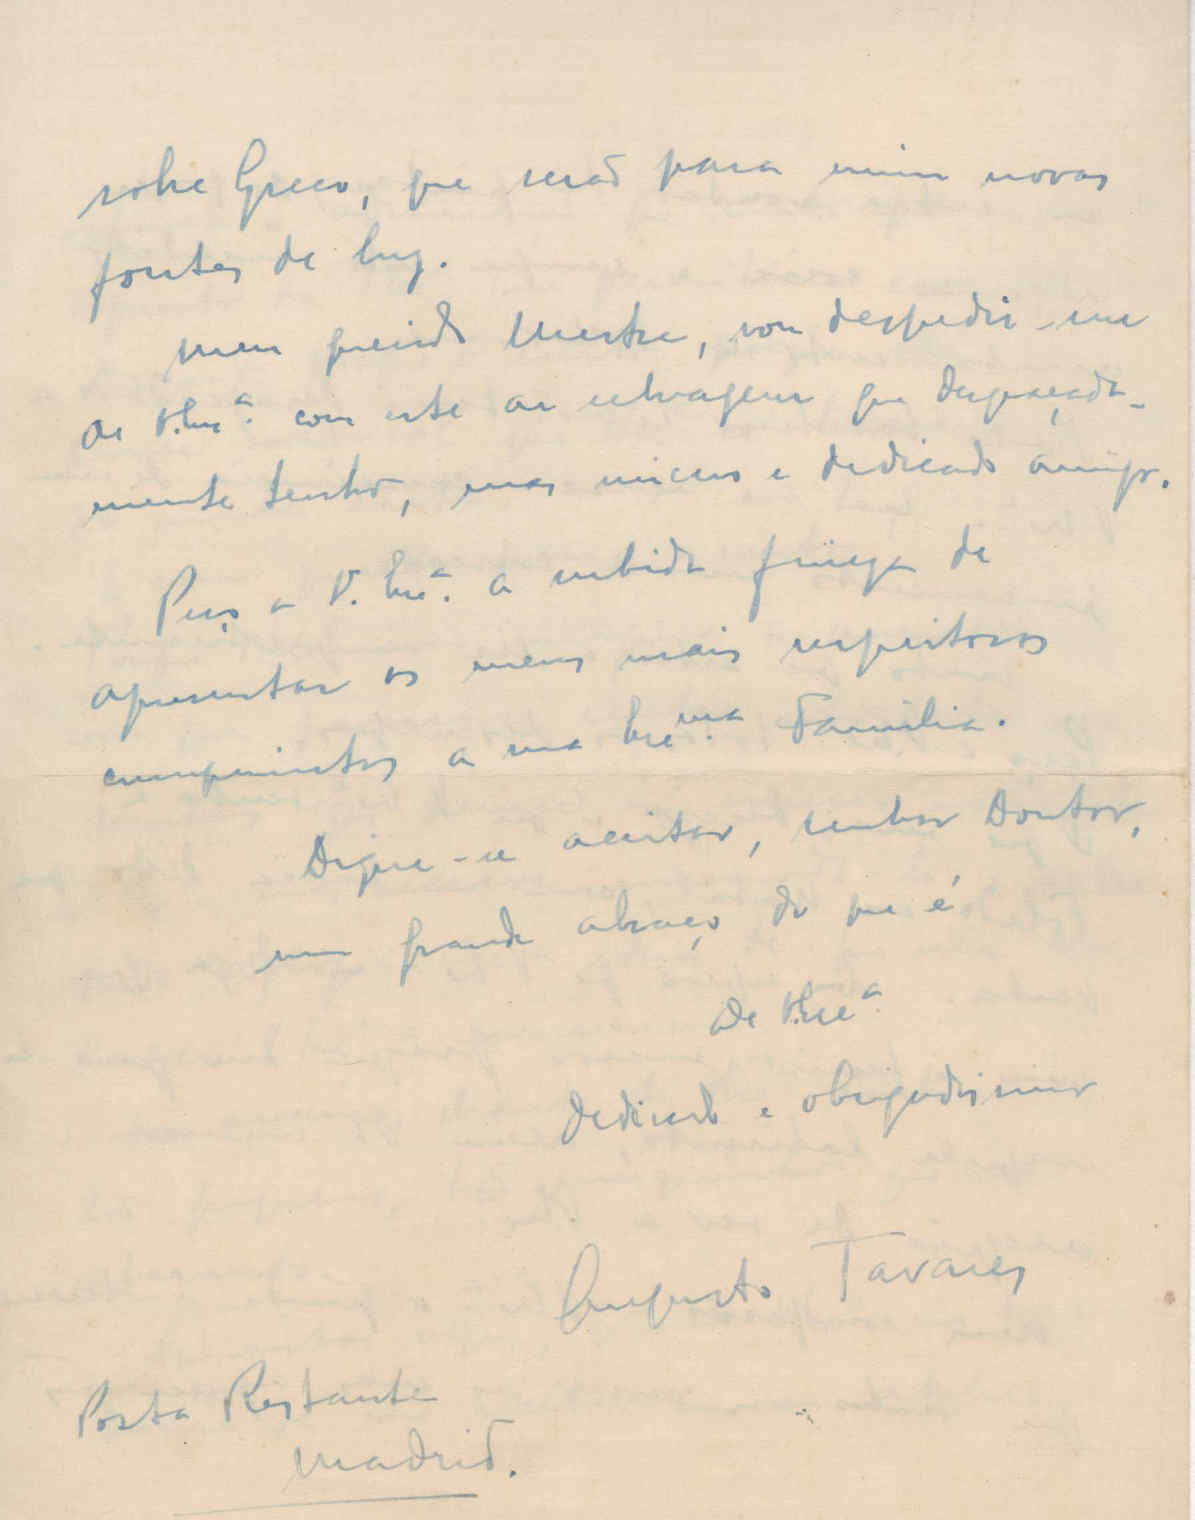 sobre Greco, que serão para mim novas
fontes de luz.
Meu querido Mestre, vou despedir-me
de V. Exª. com este ar selvagem que desgraçada-
mente tenho, mas sincero e dedicado amigo.
Peço a V. Exª. a subida fineza de
apresentar os meus mais respeitosos
cumprimentos a sua Exma. Familia.
Digne-se aceitar, senhor Doutor,
um grande abraço do que é
de V. Exª.
dedicado e obrigadissimo
Augusto Tavares
Posta Restante
Madrid.